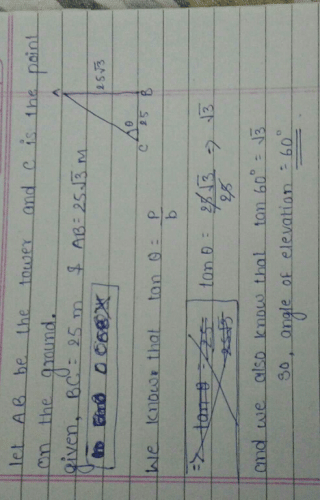 let AB be the tower and C is the point
on the ground.
given, BC = 25 m & AB = 25√3 M
A
25√3
B
θ
25
C
We know that tan θ = P/b
⇒ tan θ = 25/25√3
tan θ = 25√3/25 ⇒ √3
and we also know that tan 60° = √3
so, angle of elevation = 60°